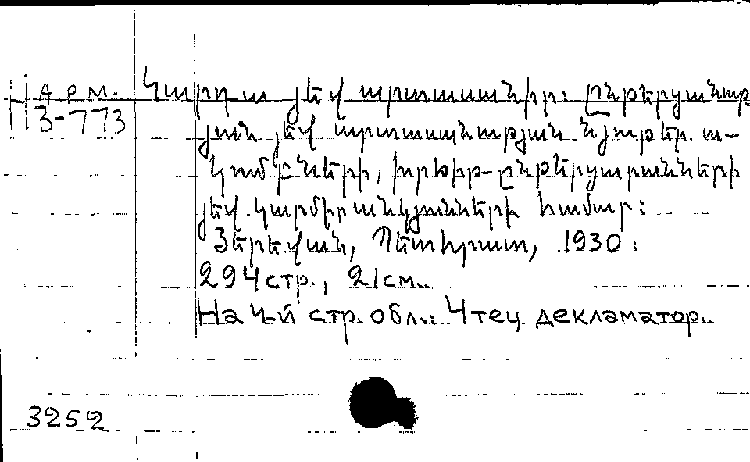 Арм.
3-773
Կարդա յեվ արտասանիր: Ընթերցանու-
յան յեվ արտասանության նյութեր ա-
կումբների, խրճիթ-ընթերցարանների
յեվ կարմիր անկյունների համար:
Յերեվան, Պետհրատ, 1930:
294 стр., 21 см.
На 4-й стр. обл.: Чтец декламатор.
3252